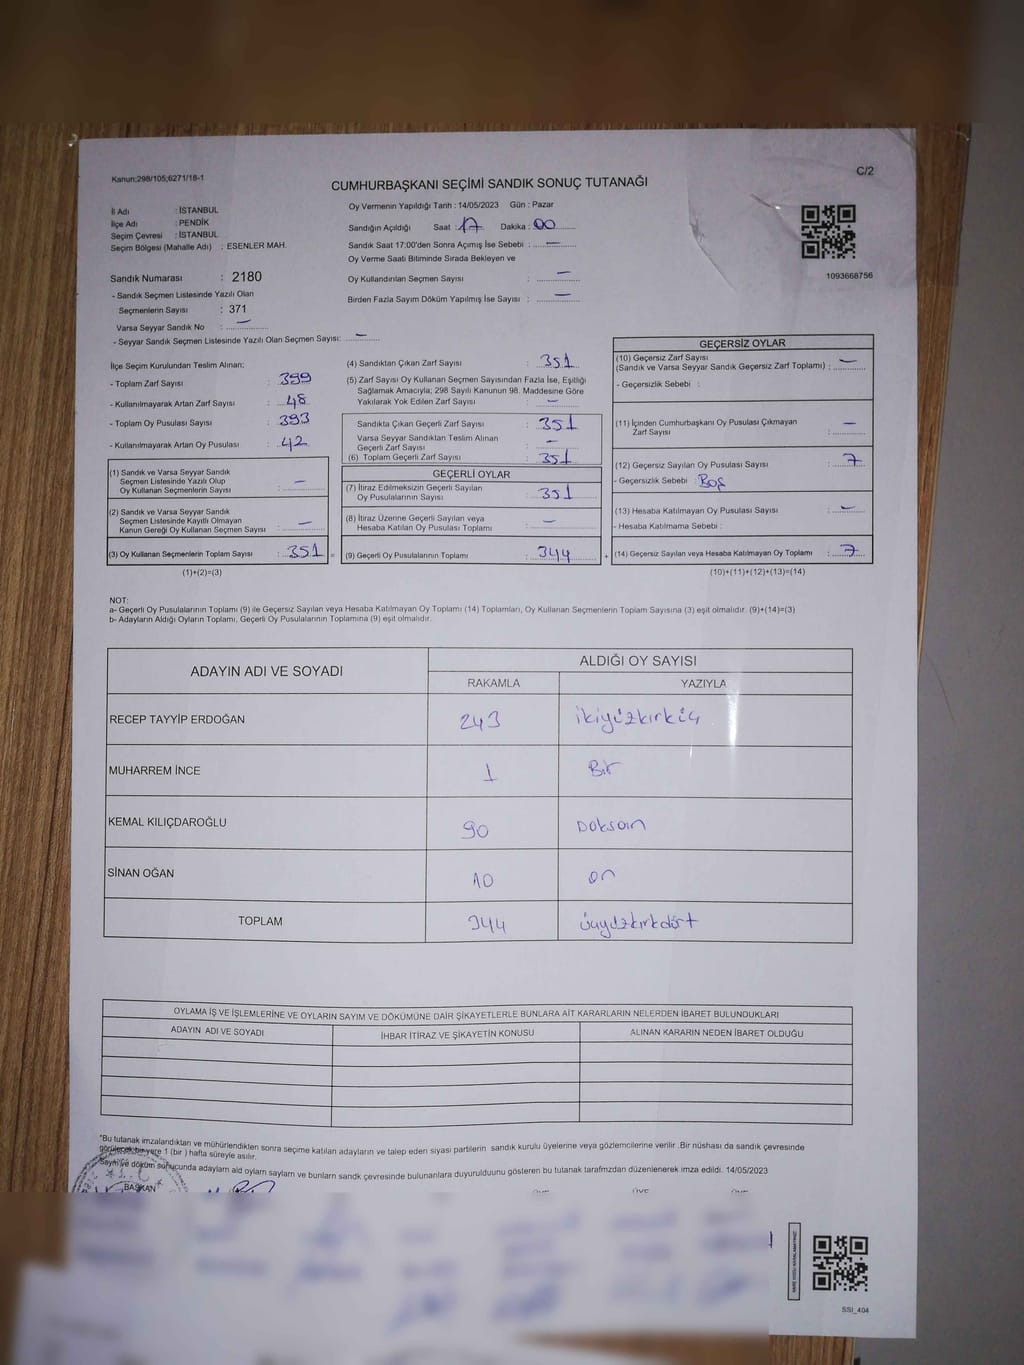 Kanun:298/105;6271/18-1
C/2
CUMHURBAŞKANI SEÇİMİ SANDIK SONUÇ TUTANAĞI
İl Adı : İSTANBUL
İlçe Adı : PENDİK
Seçim Çevresi : İSTANBUL
Seçim Bölgesi (Mahalle Adı) : ESENLER MAH.
Sandık Numarası : 2180
- Sandık Seçmen Listesinde Yazılı Olan
Seçmenlerin Sayısı : 371
Varsa Seyyar Sandık No : —
- Seyyar Sandık Seçmen Listesinde Yazılı Olan Seçmen Sayısı: —
Oy Vermenin Yapıldığı Tarih : 14/05/2023 Gün : Pazar
Sandığın Açıldığı Saat : 17 Dakika : 00
Sandık Saat 17:00'den Sonra Açımış İse Sebebi : —
Oy Verme Saati Bitiminde Sırada Bekleyen ve
Oy Kullandırılan Seçmen Sayısı : —
Birden Fazla Sayım Döküm Yapılmış İse Sayısı : —
1093668756
İlçe Seçim Kurulundan Teslim Alınan;
- Toplam Zarf Sayısı : 399
- Kullanılmayarak Artan Zarf Sayısı : 48
- Toplam Oy Pusulası Sayısı : 393
- Kullanılmayarak Artan Oy Pusulası : 42
(1) Sandık ve Varsa Seyyar Sandık
Seçmen Listesinde Yazılı Olup
Oy Kullanan Seçmenlerin Sayısı : —
(2) Sandık ve Varsa Seyyar Sandık
Seçmen Listesinde Kayıtlı Olmayan
Kanun Gereği Oy Kullanan Seçmen Sayısı : —
(3) Oy Kullanan Seçmenlerin Toplam Sayısı : 351 =
(1)+(2)=(3)
(4) Sandıktan Çıkan Zarf Sayısı : 351
(5) Zarf Sayısı Oy Kullanan Seçmen Sayısından Fazla İse, Eşitliği
Sağlamak Amacıyla; 298 Sayılı Kanunun 98. Maddesine Göre
Yakılarak Yok Edilen Zarf Sayısı : —
Sandıkta Çıkan Geçerli Zarf Sayısı : 351
Varsa Seyyar Sandıktan Teslim Alınan
Geçerli Zarf Sayısı : —
(6) Toplam Geçerli Zarf Sayısı : 351
GEÇERLİ OYLAR
(7) İtiraz Edilmeksizin Geçerli Sayılan
Oy Pusulalarının Sayısı : 351
(8) İtiraz Üzerine Geçerli Sayılan veya
Hesaba Katılan Oy Pusulası Toplamı : —
(9) Geçerli Oy Pusulalarının Toplamı : 344 +
GEÇERSİZ OYLAR
(10) Geçersiz Zarf Sayısı
(Sandık ve Varsa Seyyar Sandık Geçersiz Zarf Toplamı) : —
- Geçersizlik Sebebi :
(11) İçinden Cumhurbaşkanı Oy Pusulası Çıkmayan
Zarf Sayısı : —
(12) Geçersiz Sayılan Oy Pusulası Sayısı : 7
- Geçersizlik Sebebi : Boş
(13) Hesaba Katılmayan Oy Pusulası Sayısı : —
- Hesaba Katılmama Sebebi :
(14) Geçersiz Sayılan veya Hesaba Katılmayan Oy Toplamı : 7
(10)+(11)+(12)+(13)=(14)
NOT:
a- Geçerli Oy Pusulalarının Toplamı (9) ile Geçersiz Sayılan veya Hesaba Katılmayan Oy Toplamı (14) Toplamları, Oy Kullanan Seçmenlerin Toplam Sayısına (3) eşit olmalıdır. (9)+(14)=(3)
b- Adayların Aldığı Oyların Toplamı, Geçerli Oy Pusulalarının Toplamına (9) eşit olmalıdır.
ADAYIN ADI VE SOYADI
ALDIĞI OY SAYISI
RAKAMLA YAZIYLA
RECEP TAYYİP ERDOĞAN 243 ikiyüzkırküç
MUHARREM İNCE 1 Bir
KEMAL KILIÇDAROĞLU 90 Doksan
SİNAN OĞAN 10 on
TOPLAM 344 üçyüzkırkdört
OYLAMA İŞ VE İŞLEMLERİNE VE OYLARIN SAYIM VE DÖKÜMÜNE DAİR ŞİKAYETLERLE BUNLARA AİT KARARLARIN NELERDEN İBARET BULUNDUKLARI
ADAYIN ADI VE SOYADI İHBAR İTİRAZ VE ŞİKAYETİN KONUSU ALINAN KARARIN NEDEN İBARET OLDUĞU
*Bu tutanak imzalandıktan ve mühürlendikten sonra seçime katılan adayların ve talep eden siyasi partilerin sandık kurulu üyelerine veya gözlemcilerine verilir .Bir nüshası da sandık çevresinde
görülecek bir yere 1 (bir ) hafta süreyle asılır.
Sayım ve döküm sonucunda adayların ald oyların sayların ve bunların sandk çevresinde bulunanlara duyurulduunu gösteren bu tutanak tarafmzdan düzenlenerek imza edildi. 14/05/2023
BAŞKAN
SSİ_404